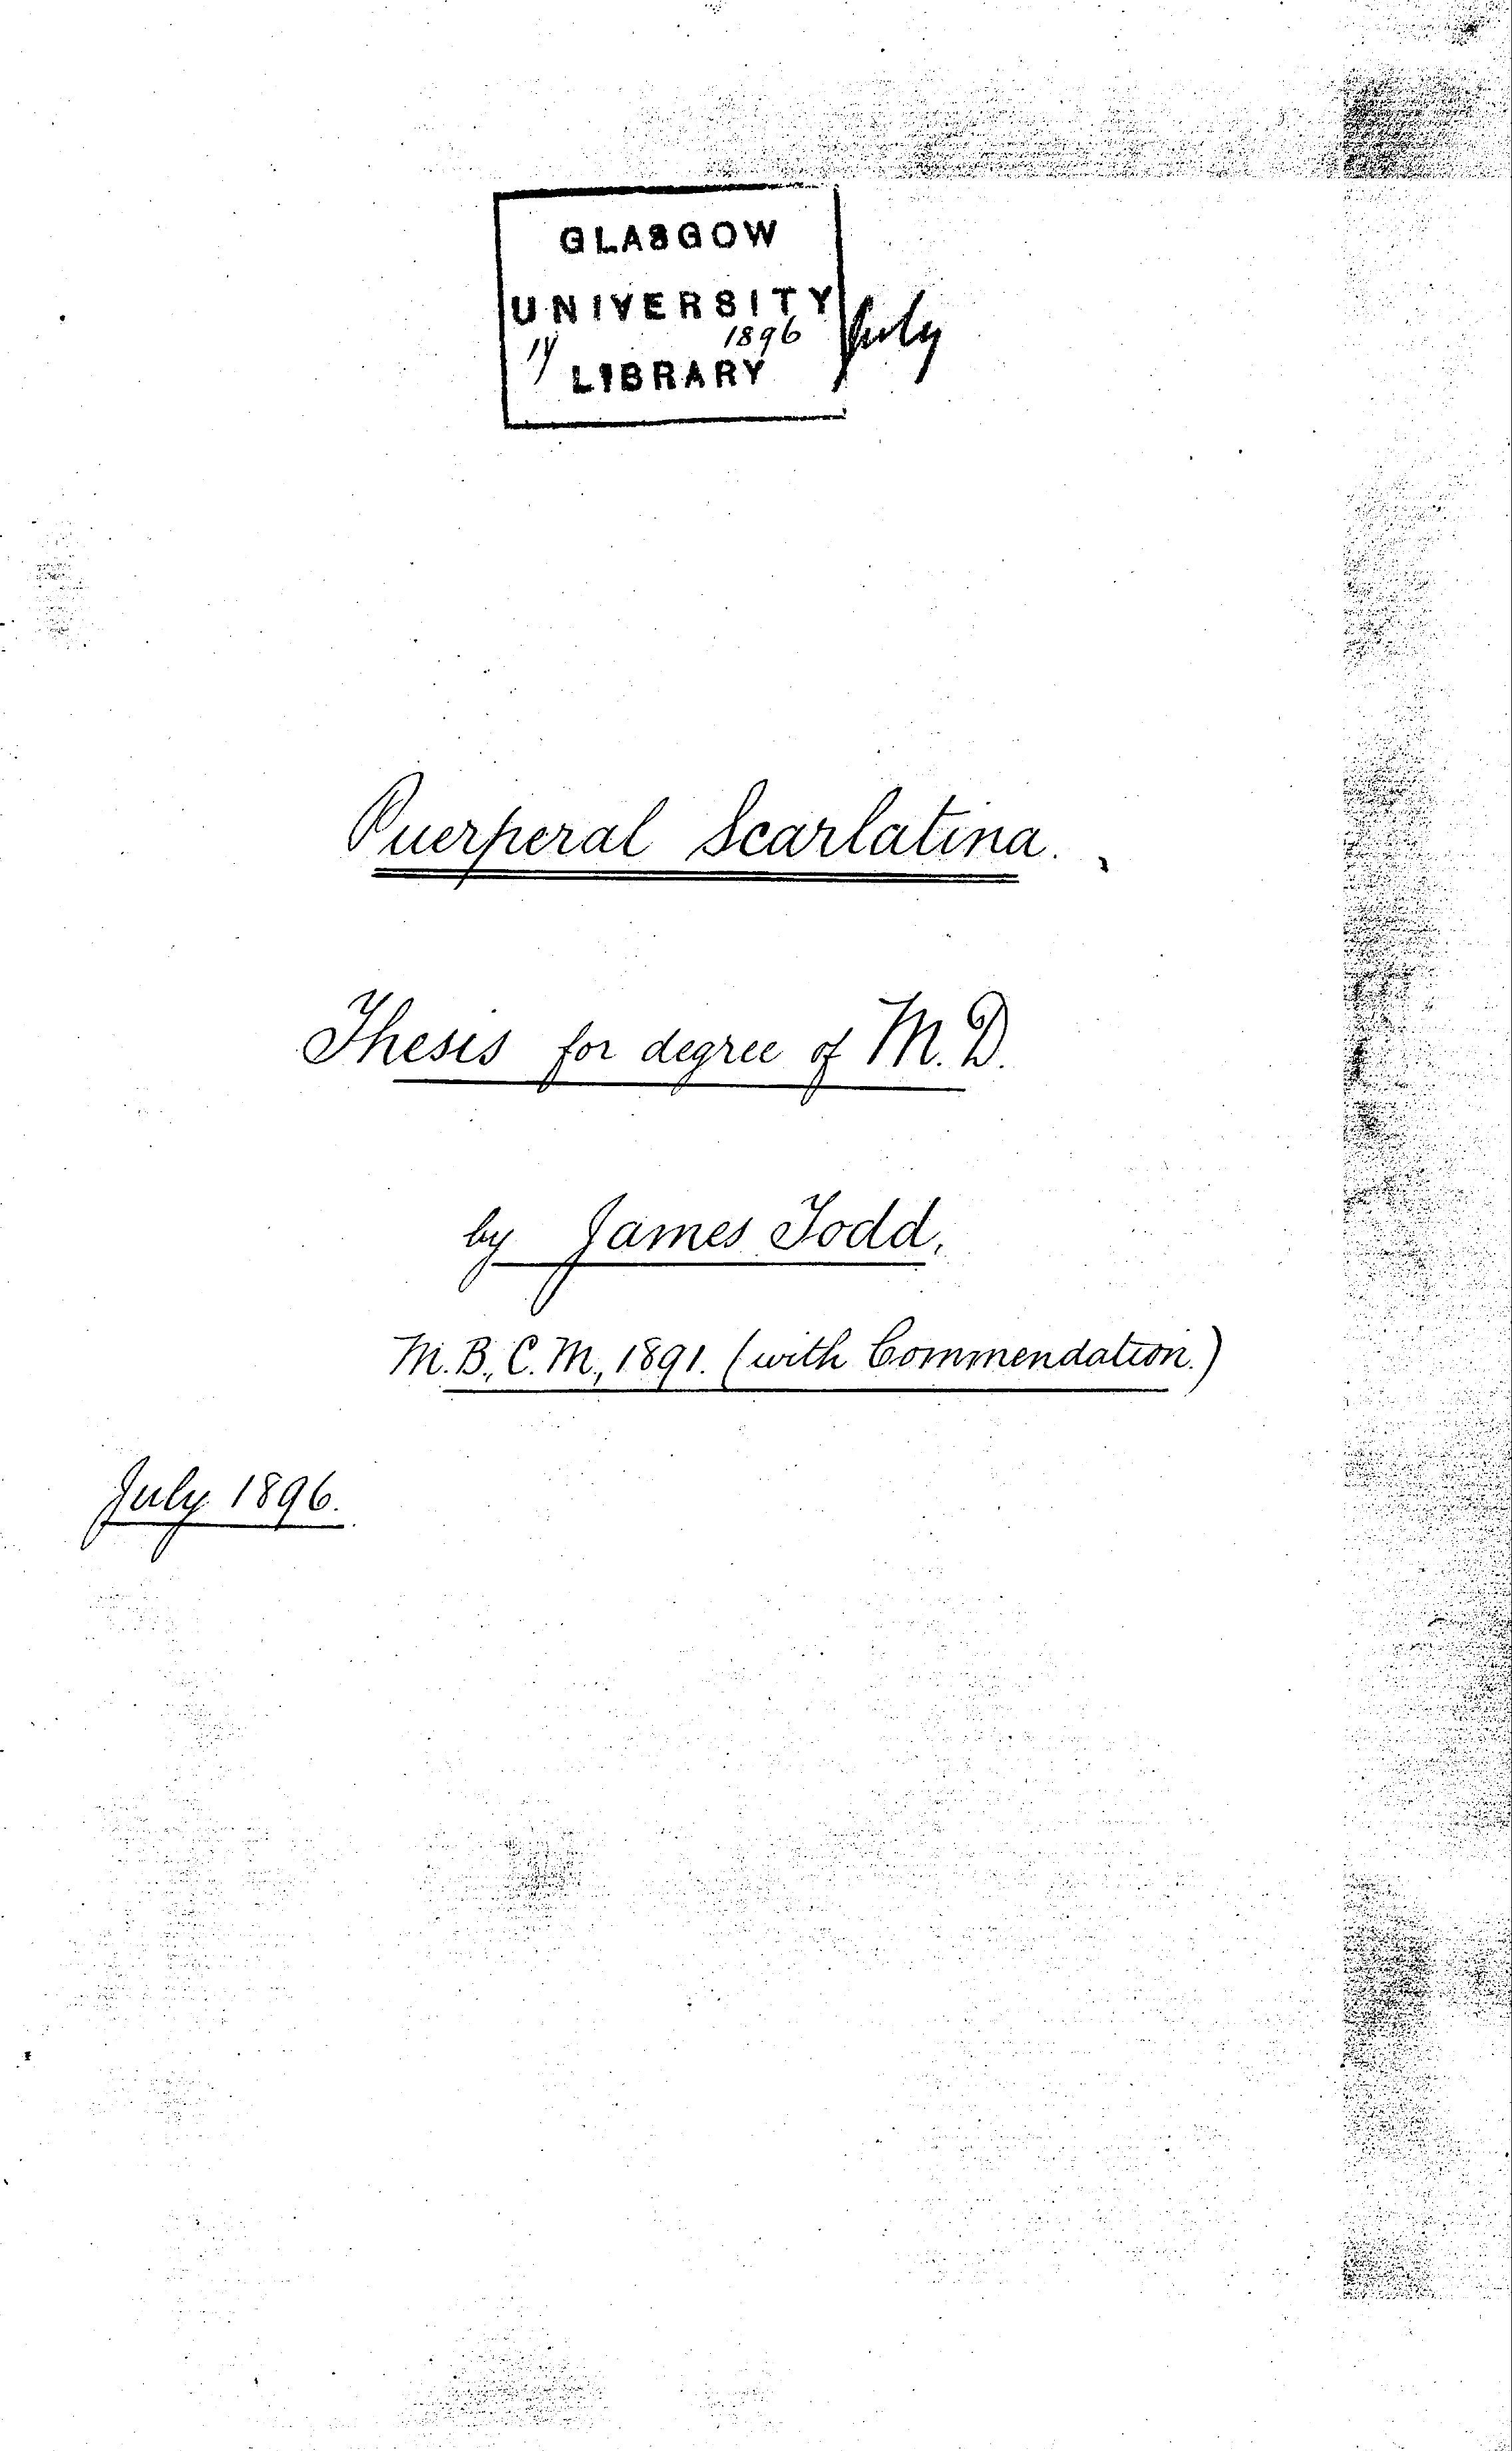 GLASGOW
UNIVERSITY
1896 July
LIBRARY
Puerperal Scarlatina.
Thesis for degree of M.D.
by James Todd,
M.B., C.M., 1891. (with Commendation.)
July 1896.